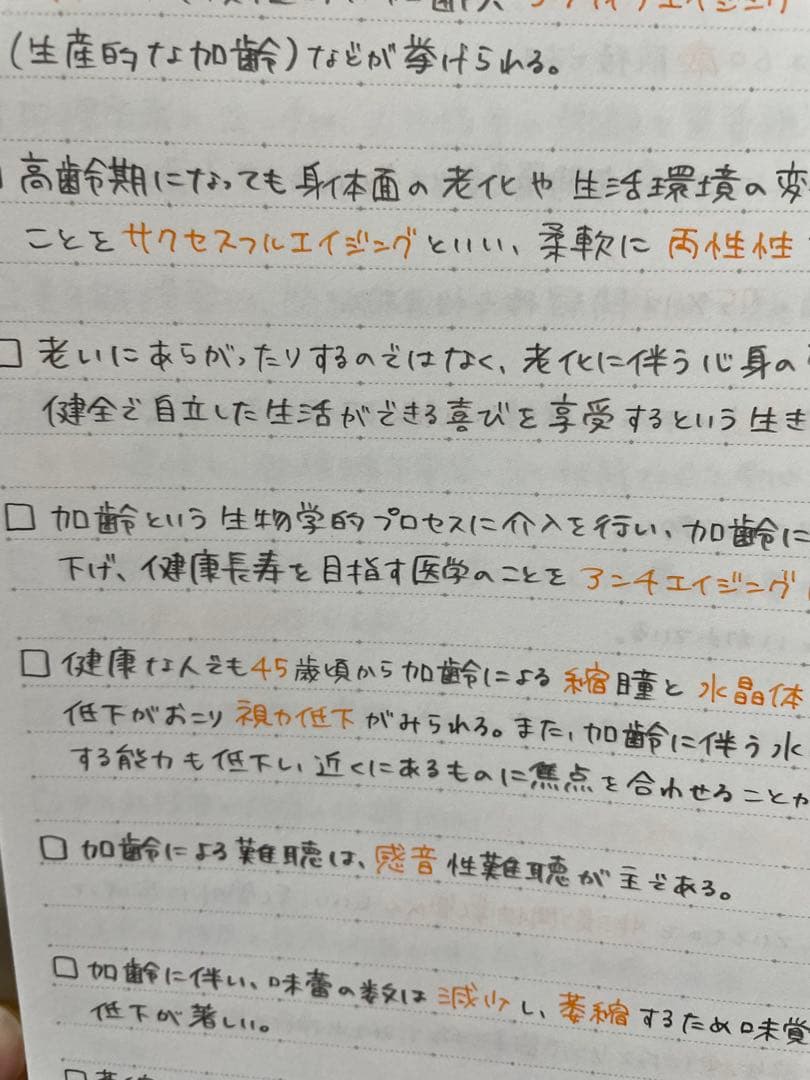 (生産的な加齢)などが挙げられる。
高齢期になっても身体面の老化や生活環境の変
ことをサクセスフルエイジングといい、柔軟に両性性
□ 老いにあらがったりするのではなく、老化に伴う心身の
健全で自立した生活ができる喜びを享受するという生き
□ 加齢という生物学的プロセスに介入を行い、加齢に
下げ、健康長寿を目指す医学のことをアンチエイジング
□ 健康な人でも45歳頃から加齢による縮瞳と水晶体
低下がおこり視力低下がみられる。また、加齢に伴う水
する能力も低下し、近くにあるものに焦点を合わせることか
□ 加齢による難聴は、感音性難聴が主である。
□ 加齢に伴い、味蕾の数は減少し、萎縮するため味覚
低下が著しい。